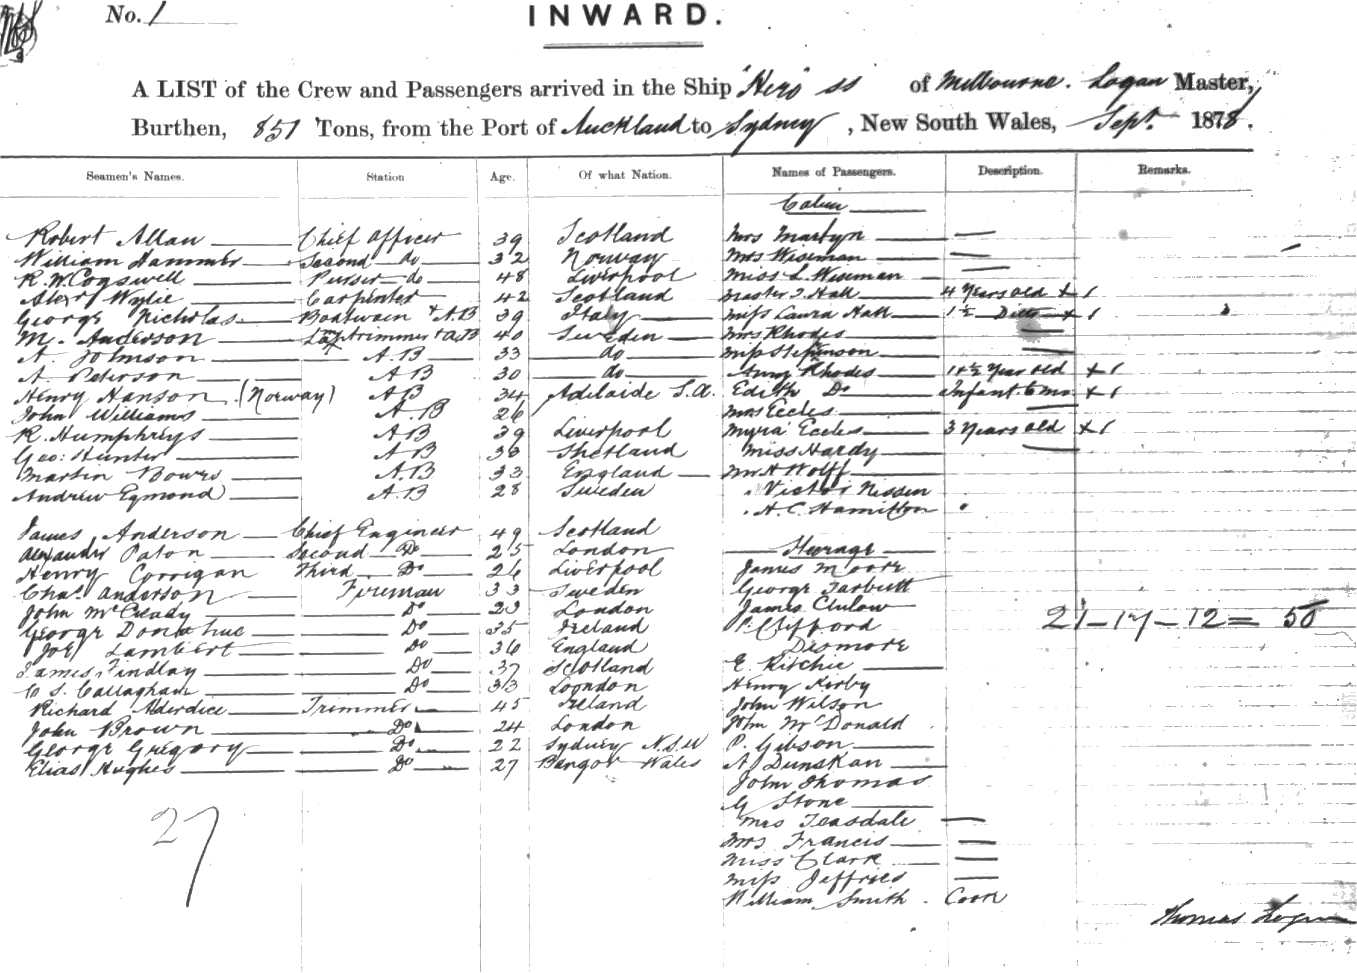 No. 1
INWARD.
A LIST of the Crew and Passengers arrived in the Ship "Hero" ss of Melbourne. Logan Master,
Burthen, 851 Tons, from the Port of Auckland to Sydney, New South Wales, Sept. 1878.
Seamen's Names. Station Age. Of what Nation. Names of Passengers. Description. Remarks.
Cabin
Robert Allan Chief Officer 39 Scotland Mrs Martyn
William Hammer Second do 32 Norway Mrs Wiseman
R. W. Cogswell Purser do 48 Liverpool Miss L. Wiseman
Alexr Wylie Carpenter 42 Scotland Master T. Hall 4 Years old + 1
George Nicholas Boatswain + A.B 39 Italy Miss Laura Hall 1½ Ditto + 1
M. Anderson Lamptrimmer + A.B 40 Sweden Mrs Rhodes
A. Johnson A.B 33 do Miss Stephenson
A. Peterson A B 30 do Amy Rhodes 1½ Year old + 1
Henry Hanson (Norway) A B 34 Adelaide S.A. Edith Do Infant 6 mo. + 1
John Williams A.B 26 Mrs Eccles
R. Humphreys A B 39 Liverpool Myra Eccles 3 Years old + 1
Geo: Hunter A B 36 Shetland Miss Hardy
Martin Bowrs A.B 33 England Mr H Wolff
Andrew Egmond A.B 28 Sweden Victor Nissen
H. C. Hamilton
James Anderson Chief Engineer 49 Scotland
Alexander Paton Second Do 25 London Steerage
Henry Corrigan Third Do 26 Liverpool James Moore
Chas. Anderson Fireman 33 Sweden George Tarbutt
John McCready Do 23 London James Clulow 21 – 17 – 12 = 50
George Donahue Do 35 Ireland P. Clifford
Joe Lambert Do 36 England Desmore
James Findlay Do 37 Scotland E. Ritchie
C S. Callaghan Do 33 London Henry Kirby
Richard Alderdice Trimmer 45 Ireland John Wilson
John Brown Do 24 London John McDonald
George Gregory Do 22 Sydney N.S.W P. Gibson
Elias Hughes Do 27 Bangor Wales A Dunskan
John Thomas
27 G Stone
Mrs Teasdale
Mrs Francis
Miss Clark
Miss Jeffries
William Smith. Cook
Thomas Logan